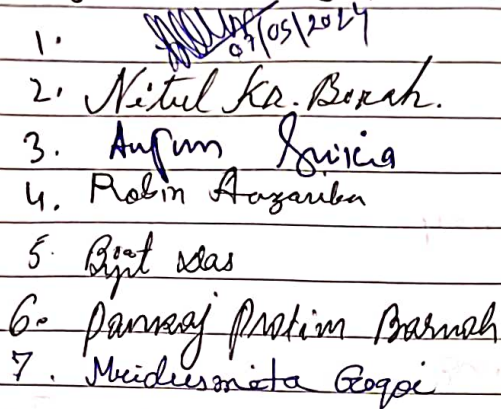 1. 07/05/2024
2. Nitul Kr. Borah.
3.
4. Robin Hazarika
5. Das
6. Pankaj Protim Baruah
7. Mridusmita Gogoi